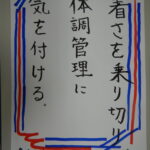 暑さを乗り切り
体調管理に
気を付ける.